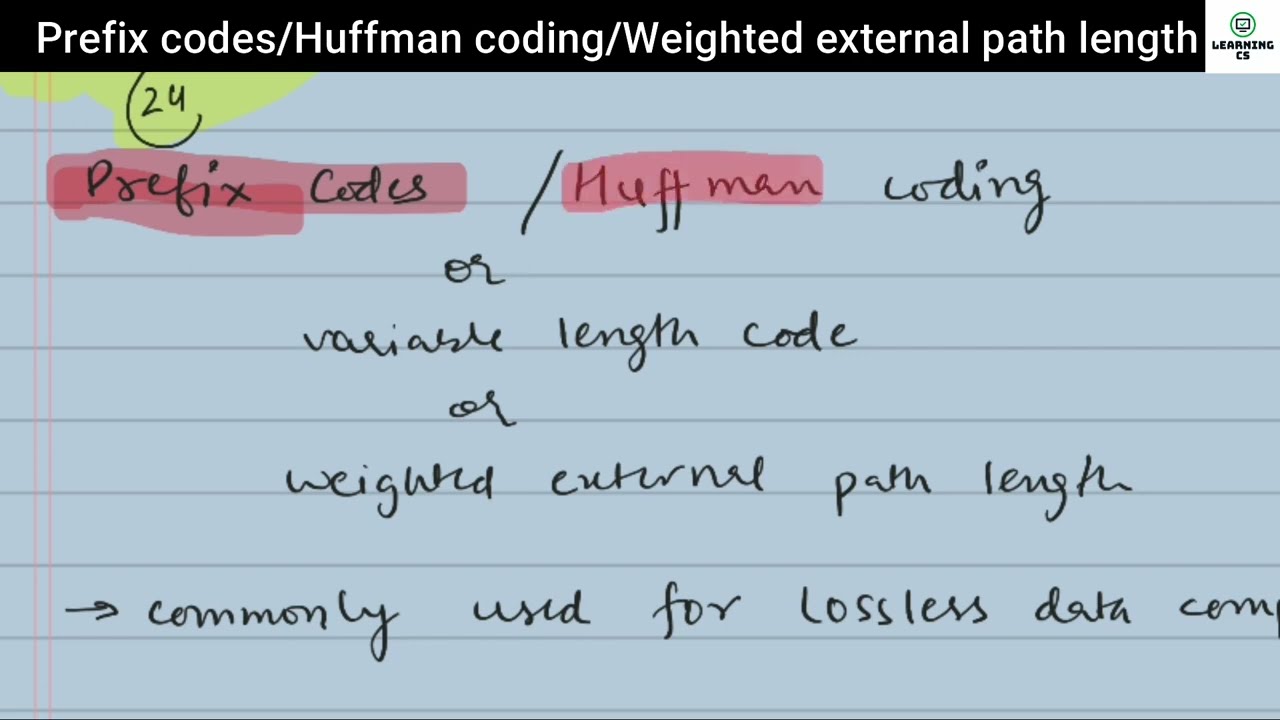 Prefix codes/Huffman coding/Weighted external path length
LEARNING
CS
24
Prefix Codes / Huffman coding
or
variable length code
or
weighted external path length
→ commonly used for lossless data comp